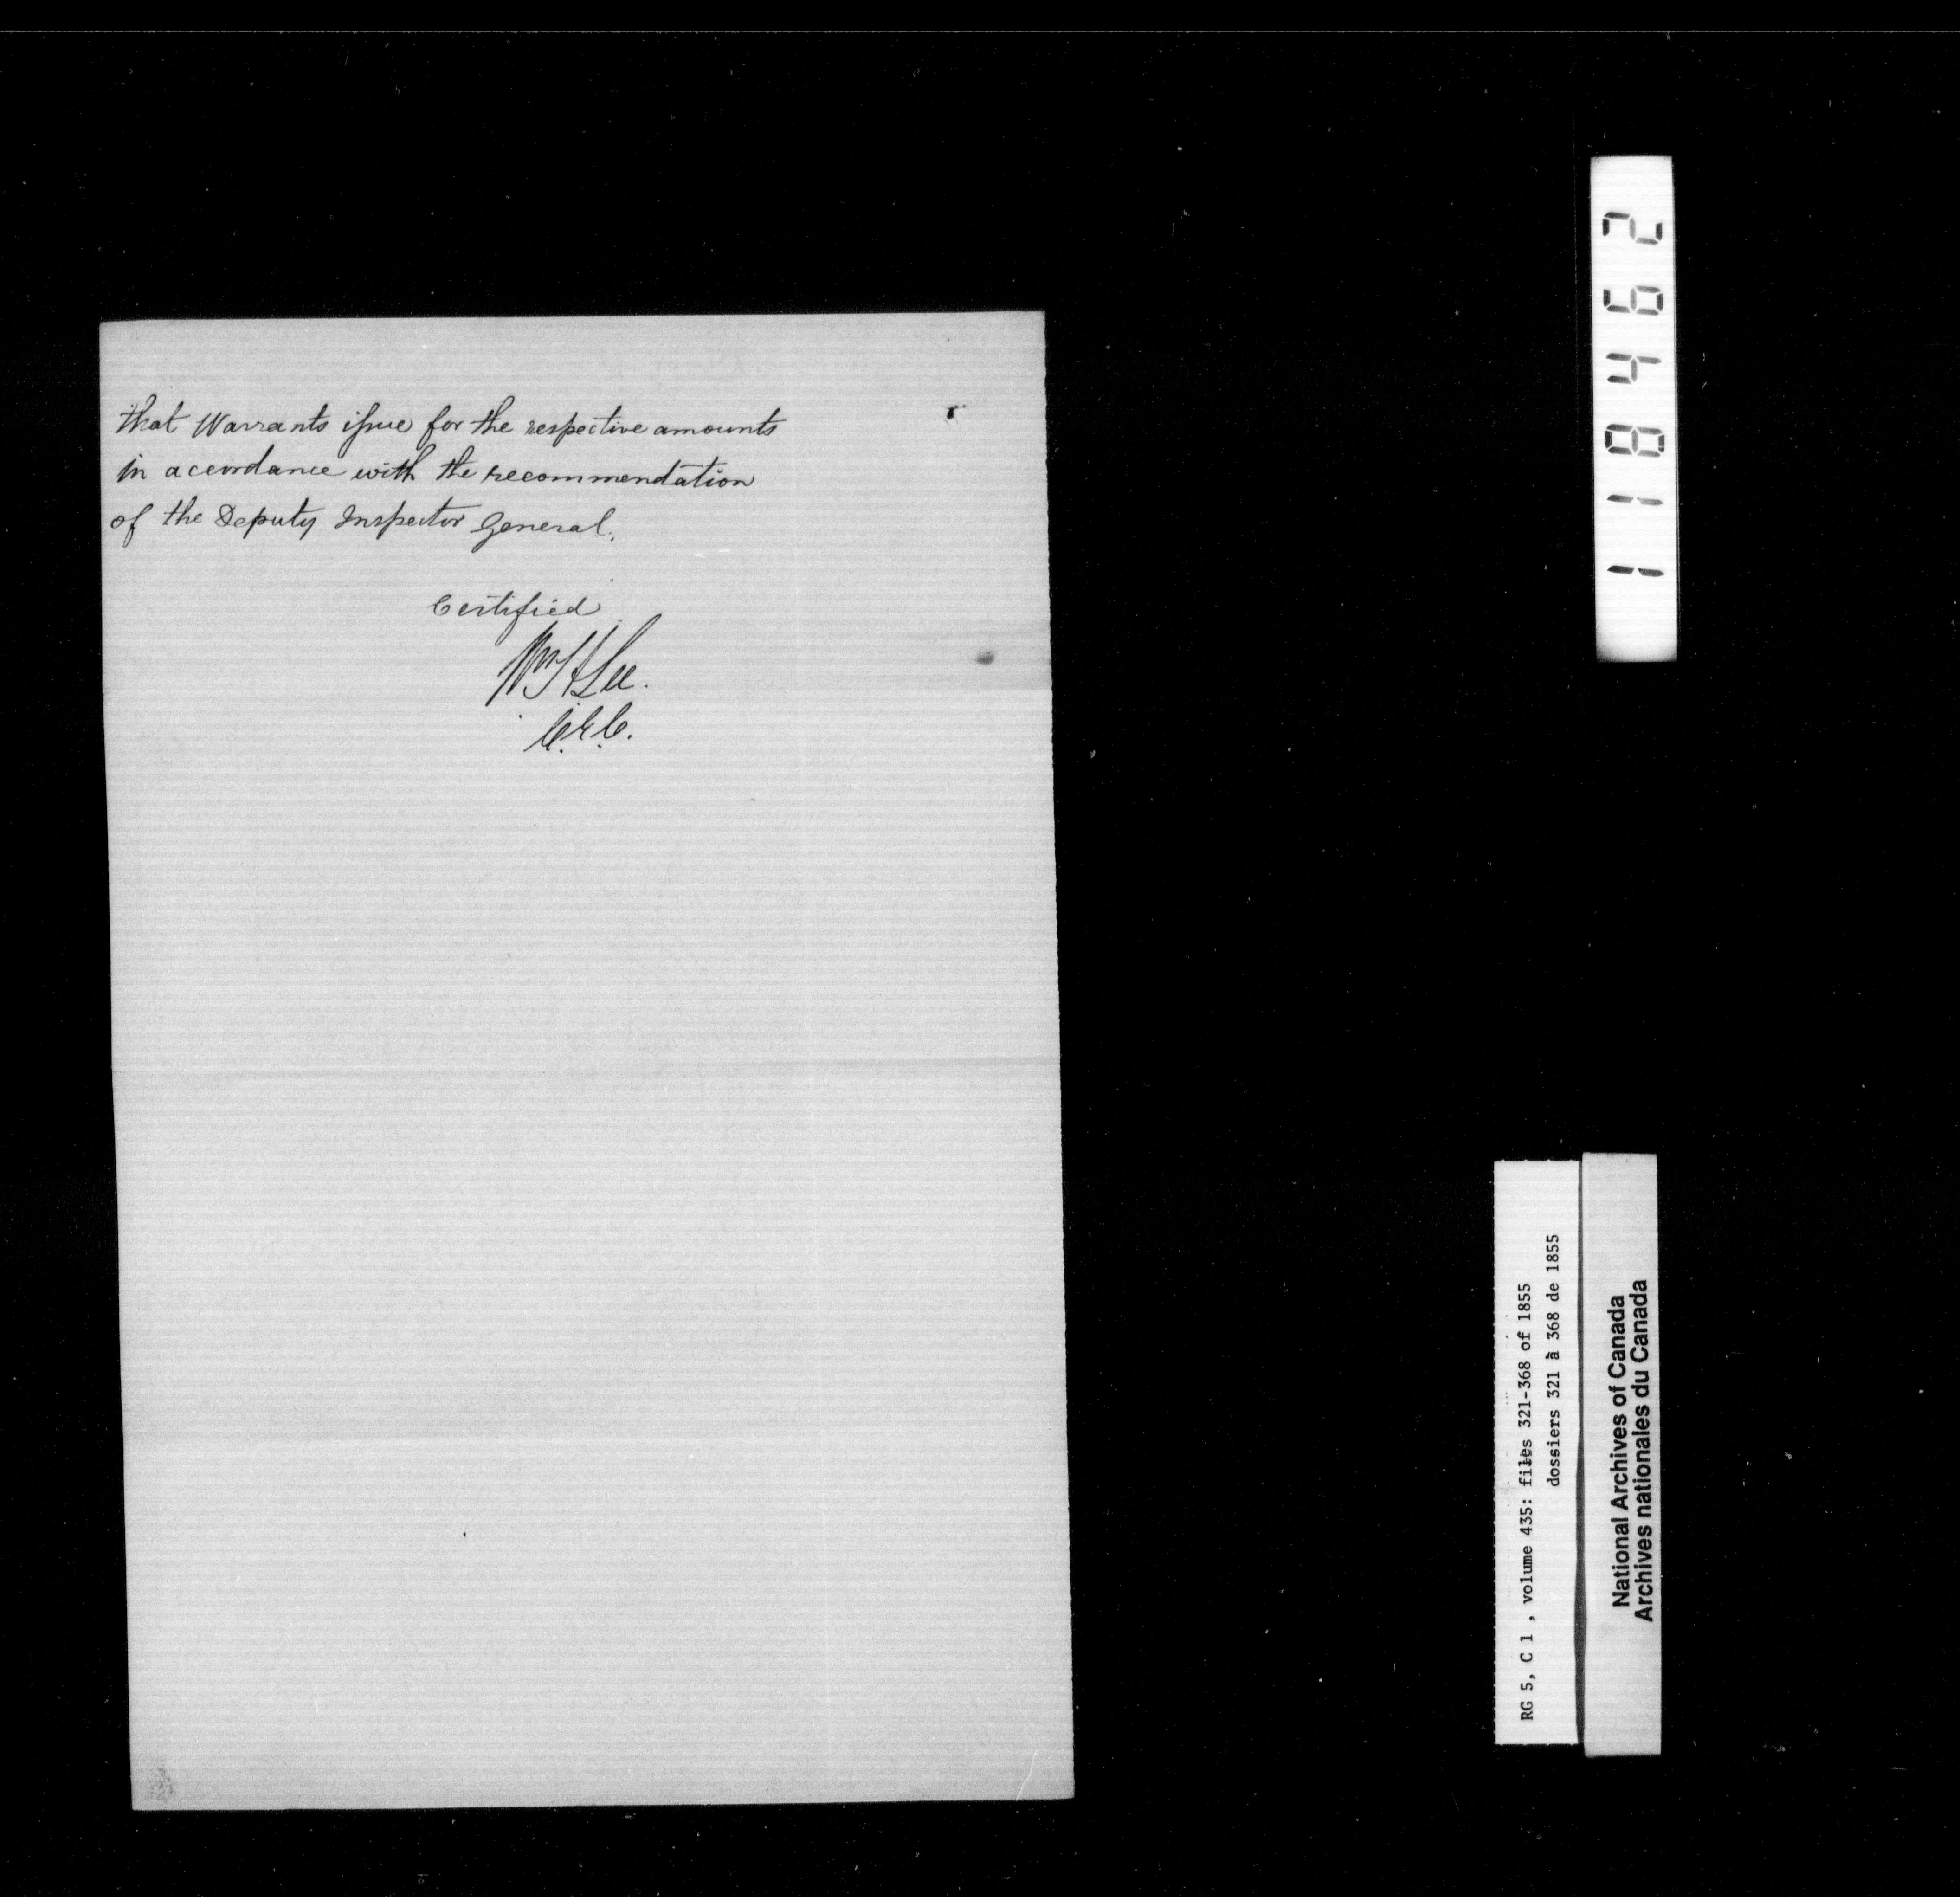 that Warrants issue for the respective amounts
in accordance with the recommendation
of the Deputy Inspector General.
Certified
Wm H Lee.
C.E.C.
118462
RG 5, C 1 , volume 435: files 321-368 of 1855
dossiers 321 à 368 de 1855
National Archives of Canada
Archives nationales du Canada